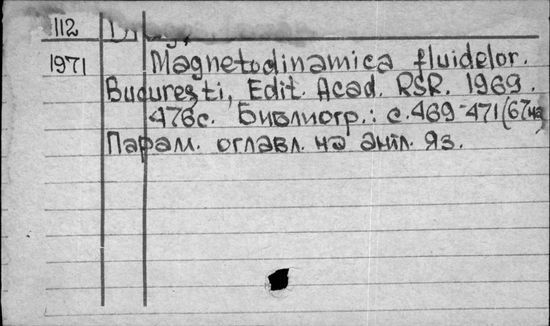 112
1971 Magnetodinamica fluidelor.
București, Edit. Acad. RSR. 1969.
476с. Библиогр.: с.469-471 (67 на
Парам. оглавл. на англ. яз.